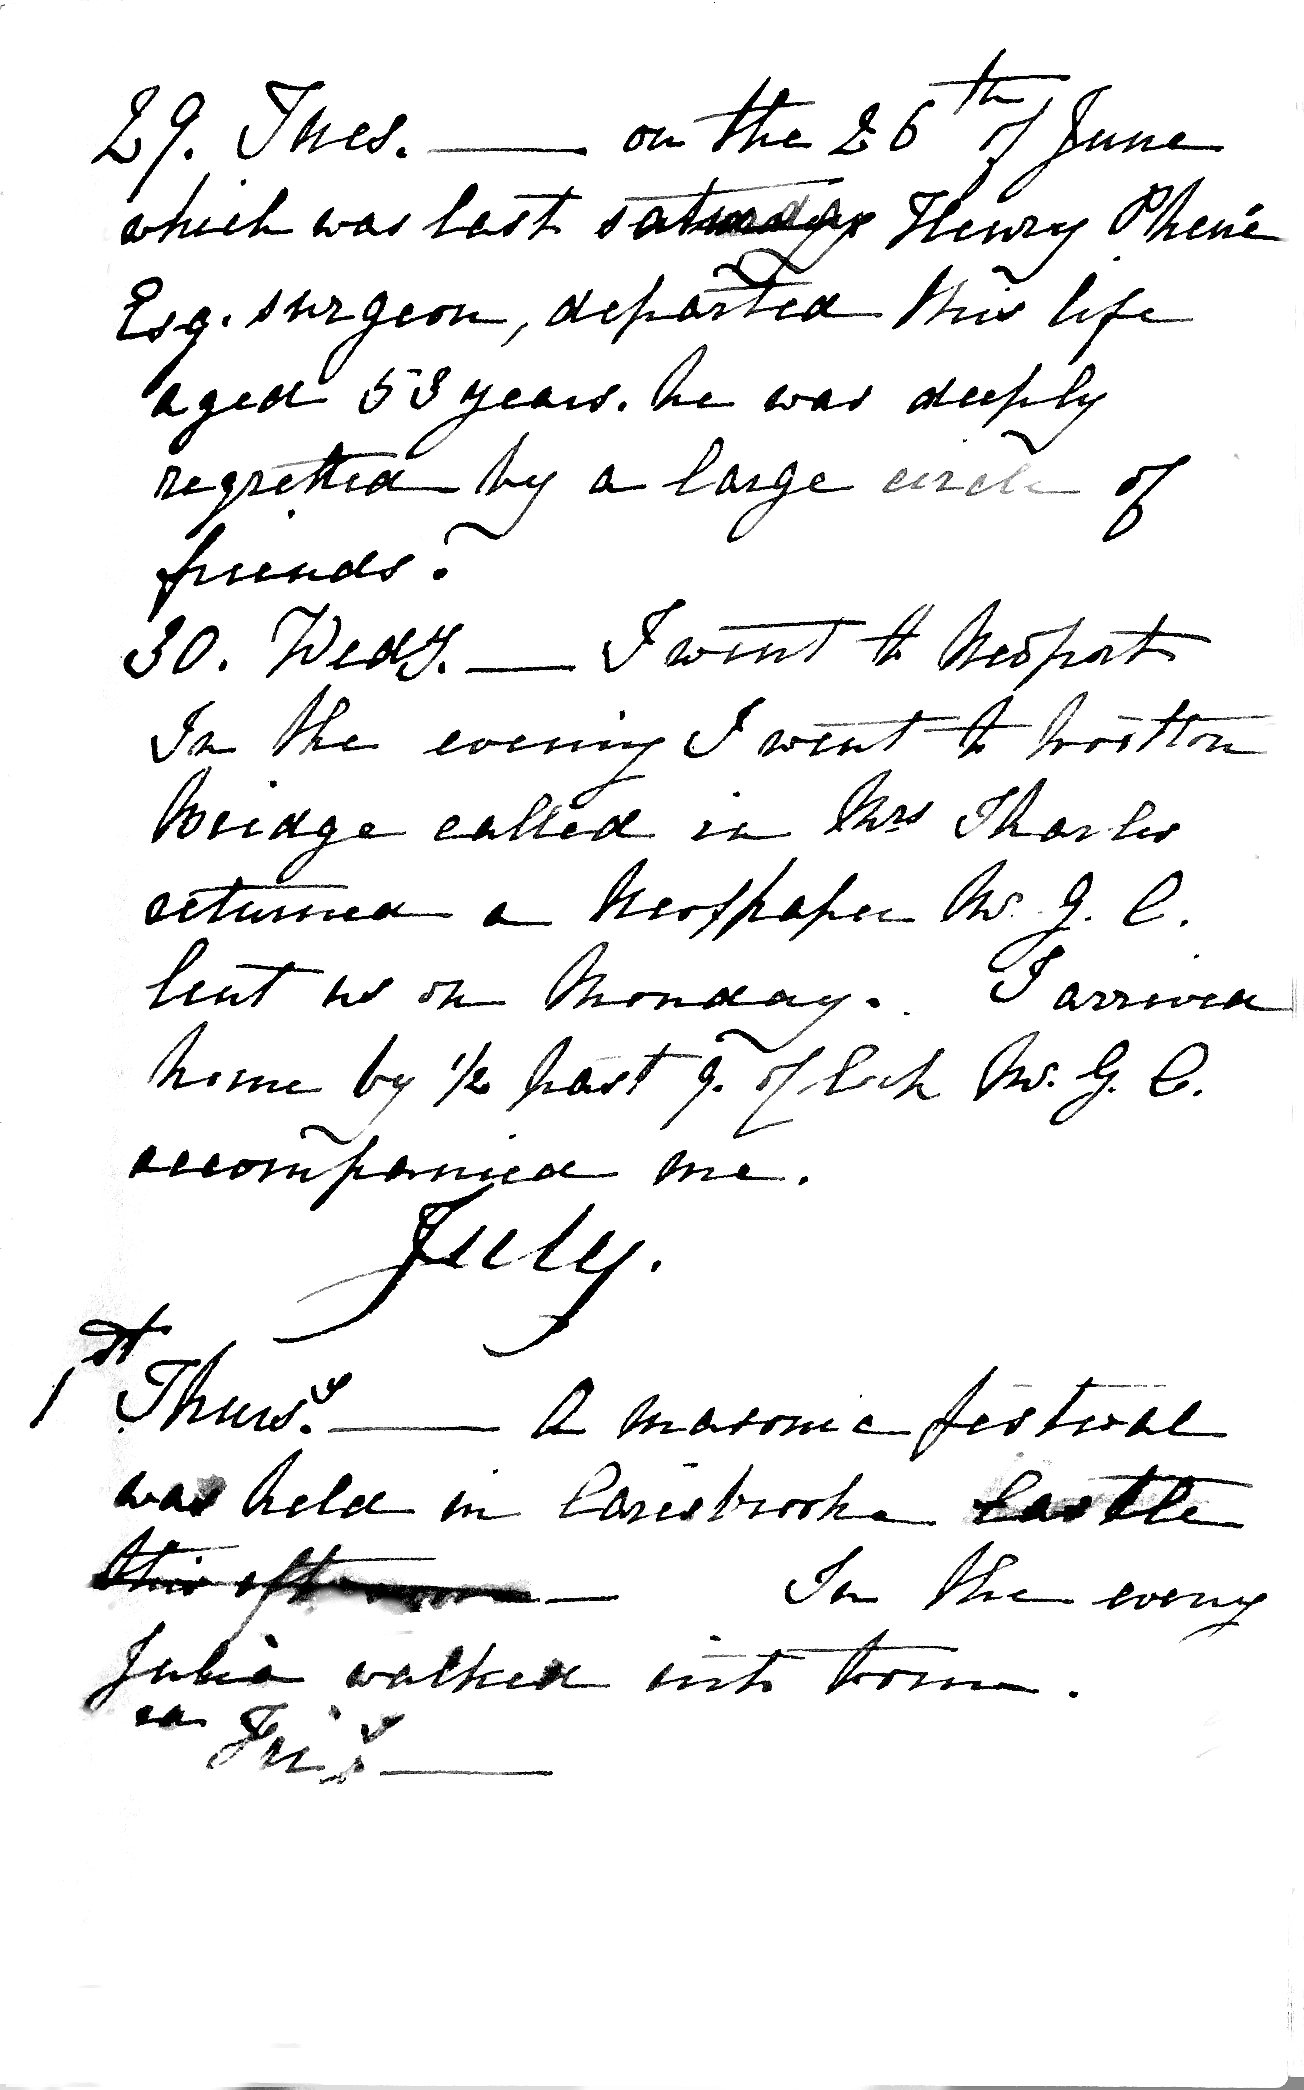 29. Tues. — on the 26th of June
which was last saturday Henry Phené
Esq. surgeon, departed this life
aged 53 years. he was deeply
regretted by a large circle of
friends.
30. Wedy. — I went to Newport
In the evening I went to Wootton
Bridge called in Mrs
returned a Newspaper W. G. C.
lent us on Monday. I arrived
home by ½ past 9. of Clock W. G. C.
accompanied me.
July.
1st Thursy. — A masonic festival
was held in Carisbrooke Castle
this afternoon — In the eveng
Julia walked into town.
Friy. —